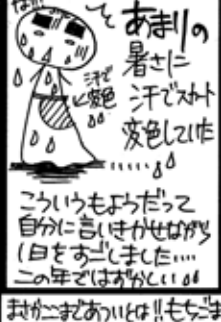 あまりの
暑さに
汗でスカート
変色していた
汗で
変色
こういうもようだって
自分に言いきかせながら
1日をすごしました….
この年ではずかしい
まさかここまであついとは!!もちごま